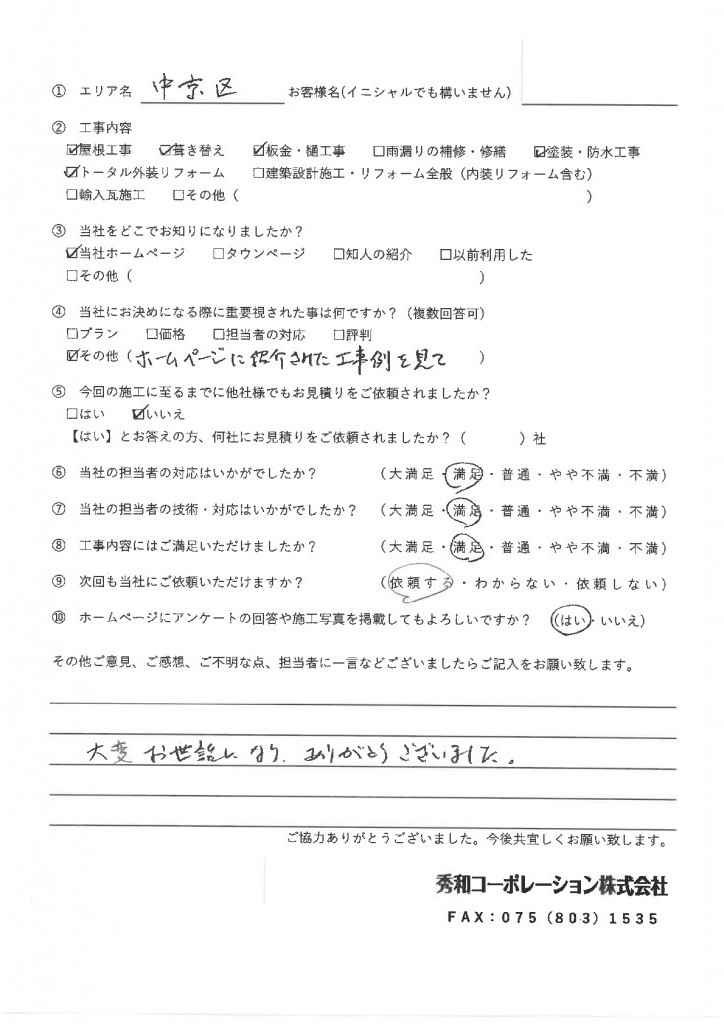 ① エリア名 中京区 お客様名(イニシャルでも構いません)
② 工事内容
☑屋根工事 ☑葺き替え ☑板金・樋工事 □雨漏りの補修・修繕 ☑塗装・防水工事
☑トータル外装リフォーム □建築設計施工・リフォーム全般（内装リフォーム含む）
□輸入瓦施工 □その他（ ）
③ 当社をどこでお知りになりましたか？
☑当社ホームページ □タウンページ □知人の紹介 □以前利用した
□その他（ ）
④ 当社にお決めになる際に重要視された事は何ですか？（複数回答可）
□プラン □価格 □担当者の対応 □評判
☑その他（ホームページに紹介された工事例を見て ）
⑤ 今回の施工に至るまでに他社様でもお見積りをご依頼されましたか？
□はい ☑いいえ
【はい】とお答えの方、何社にお見積りをご依頼されましたか？（ ）社
⑥ 当社の担当者の対応はいかがでしたか？ （大満足・満足・普通・やや不満・不満）
⑦ 当社の担当者の技術・対応はいかがでしたか？ （大満足・満足・普通・やや不満・不満）
⑧ 工事内容にはご満足いただけましたか？ （大満足・満足・普通・やや不満・不満）
⑨ 次回も当社にご依頼いただけますか？ （依頼する・わからない・依頼しない）
⑩ ホームページにアンケートの回答や施工写真を掲載してもよろしいですか？ （はい・いいえ）
その他ご意見、ご感想、ご不明な点、担当者に一言などございましたらご記入をお願い致します。
大変お世話になり、ありがとうございました。
ご協力ありがとうございました。今後共宜しくお願い致します。
秀和コーポレーション株式会社
FAX：075（803）1535